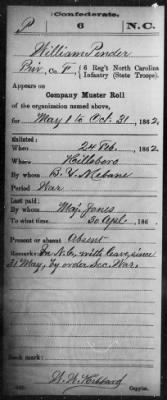 Confederate.
P 6 N.C.
William Ponder
Priv, Co. F, 6 Reg't North Carolina
Infantry (State Troops).
Appears on
Company Muster Roll
of the organization named above,
for May 1 to Oct. 31, 1862.
Enlisted:
When 24 Feb., 1862.
Where Hillsboro
By whom B. Y. Mebane
Period War
Last paid:
By whom Maj. Jones
To what time 30 Apl, 186
Present or absent Absent
Remarks: In N.C. with leave since
31 May, by order Sec. War.
Book mark:
W. W. Hibbard
Copyist.